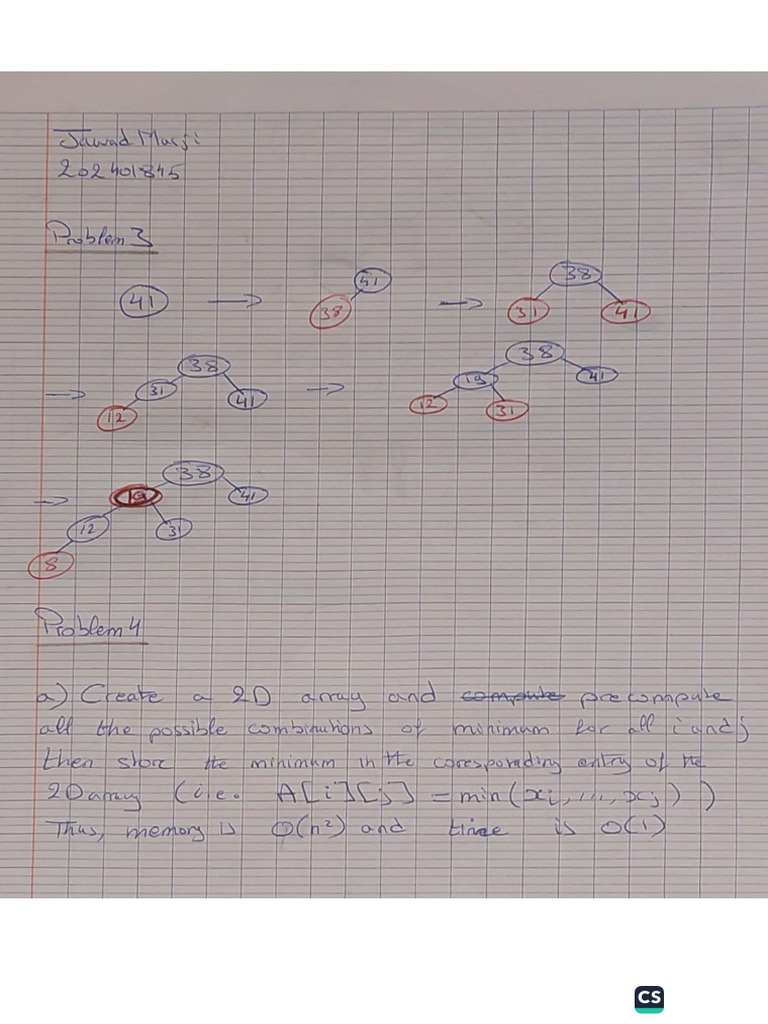 Jawad Marji
202401845
Problem 3
41 → 38 41 → 31 38 41
→ 12 31 38 41 → 12 19 31 38 41
→ 8 12 19 31 38 41
Problem 4
a) Create a 2D array and compute precompute
all the possible combinations of minimum for all i and j
then store the minimum in the coresponding entry of the
2D array (i.e. A[i][j] = min(xi, ..., xj))
Thus, memory is O(n²) and time is O(1)
CS